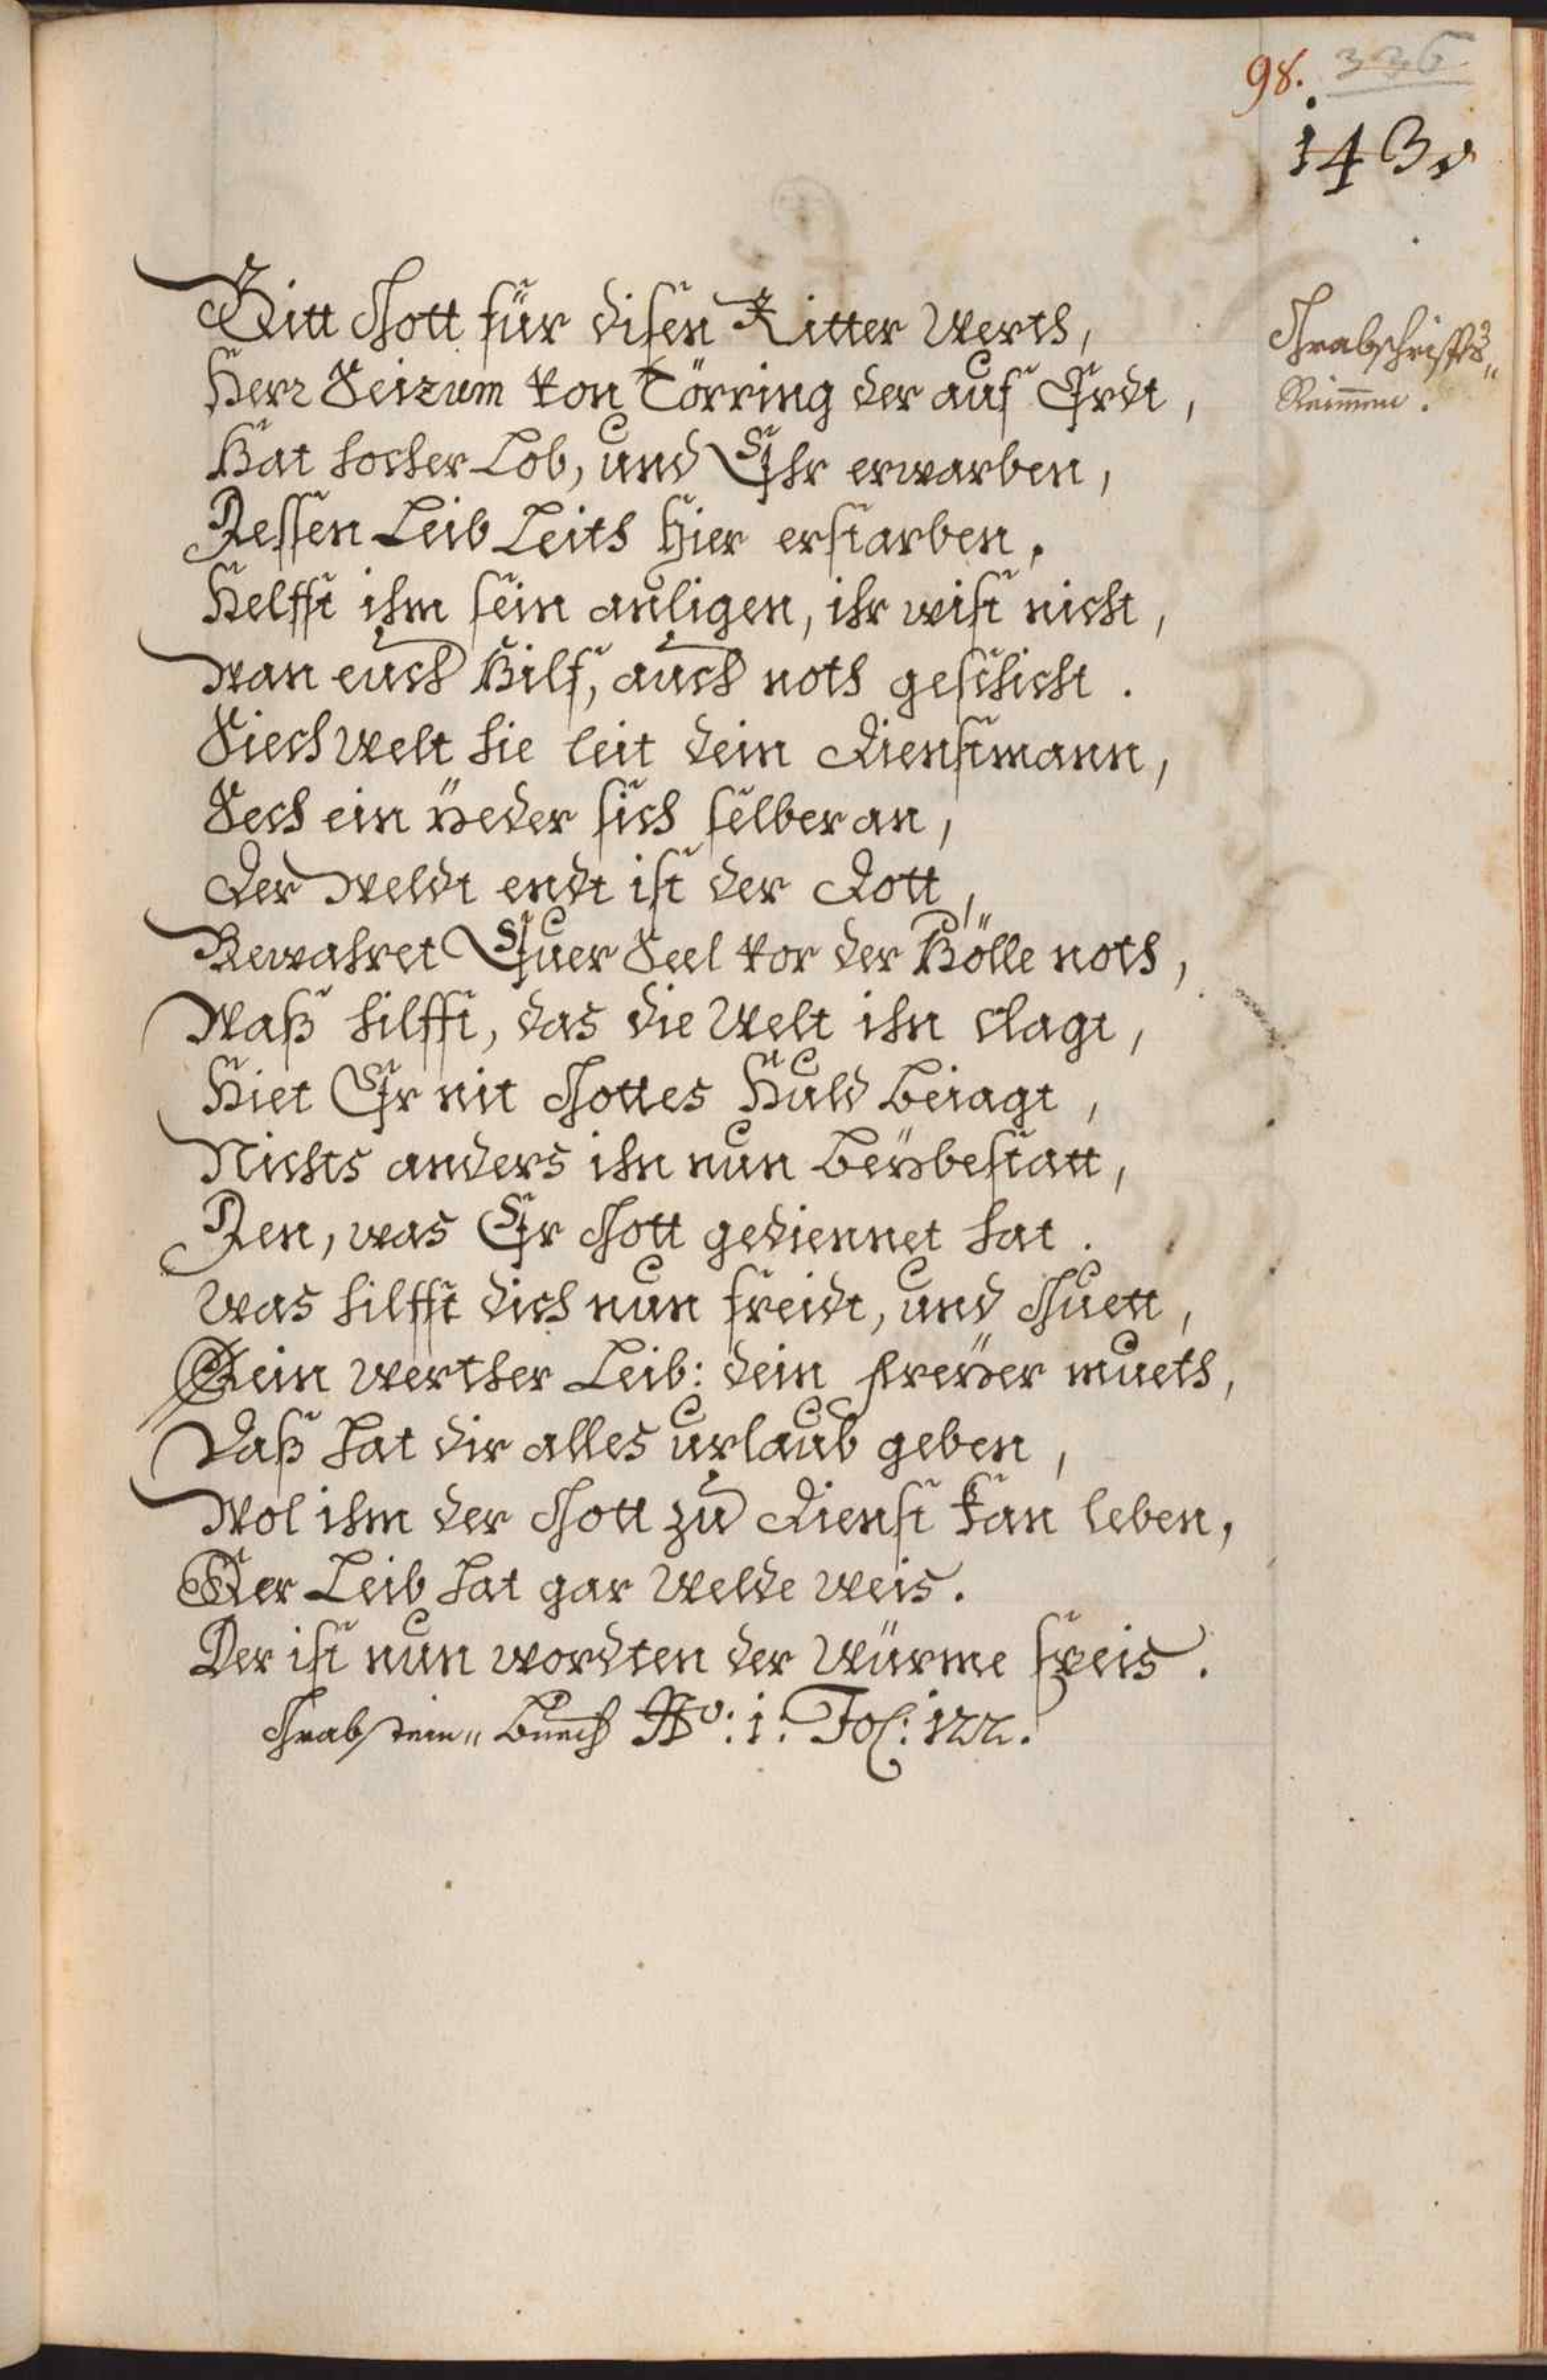 98. 336
1430
Bitt Gott für disen Ritter Werth,
Grabschriffts„
Reimmen.
Herr Seizum von Törring der auf Erdt,
Hat hocher Lob, und Ehr erwarben,
Dessen Leib Leith hier erstarben.
Helfft ihm sein anligen, ihr wist nicht,
Wan euch Hilf, auch noth geschicht.
Siech Welt hie leit dein Dienstmann,
Sech ein yeder sich selber an,
Der Weldt endt ist der Dott,
Bewahret Euer Seel vor der Hölle noth,
Waß hilfft, das die Welt ihn clagt,
Hiet Er nit Gottes Huld beiagt,
Nichts anders ihn nun beÿbestatt,
Den, was Er Gott gediennet hat.
Was hilfft dich nun freidt, und Guett,
Dein werther Leib: dein freÿer mueth,
Daß hat dir alles urlaub geben,
Wol ihm der Gott zu Dienst kan leben,
Der Leib hat gar Welde weis.
Der ist nun wordten der Würme speis.
Grabstein„ Buech No: 1: Fol: 122.